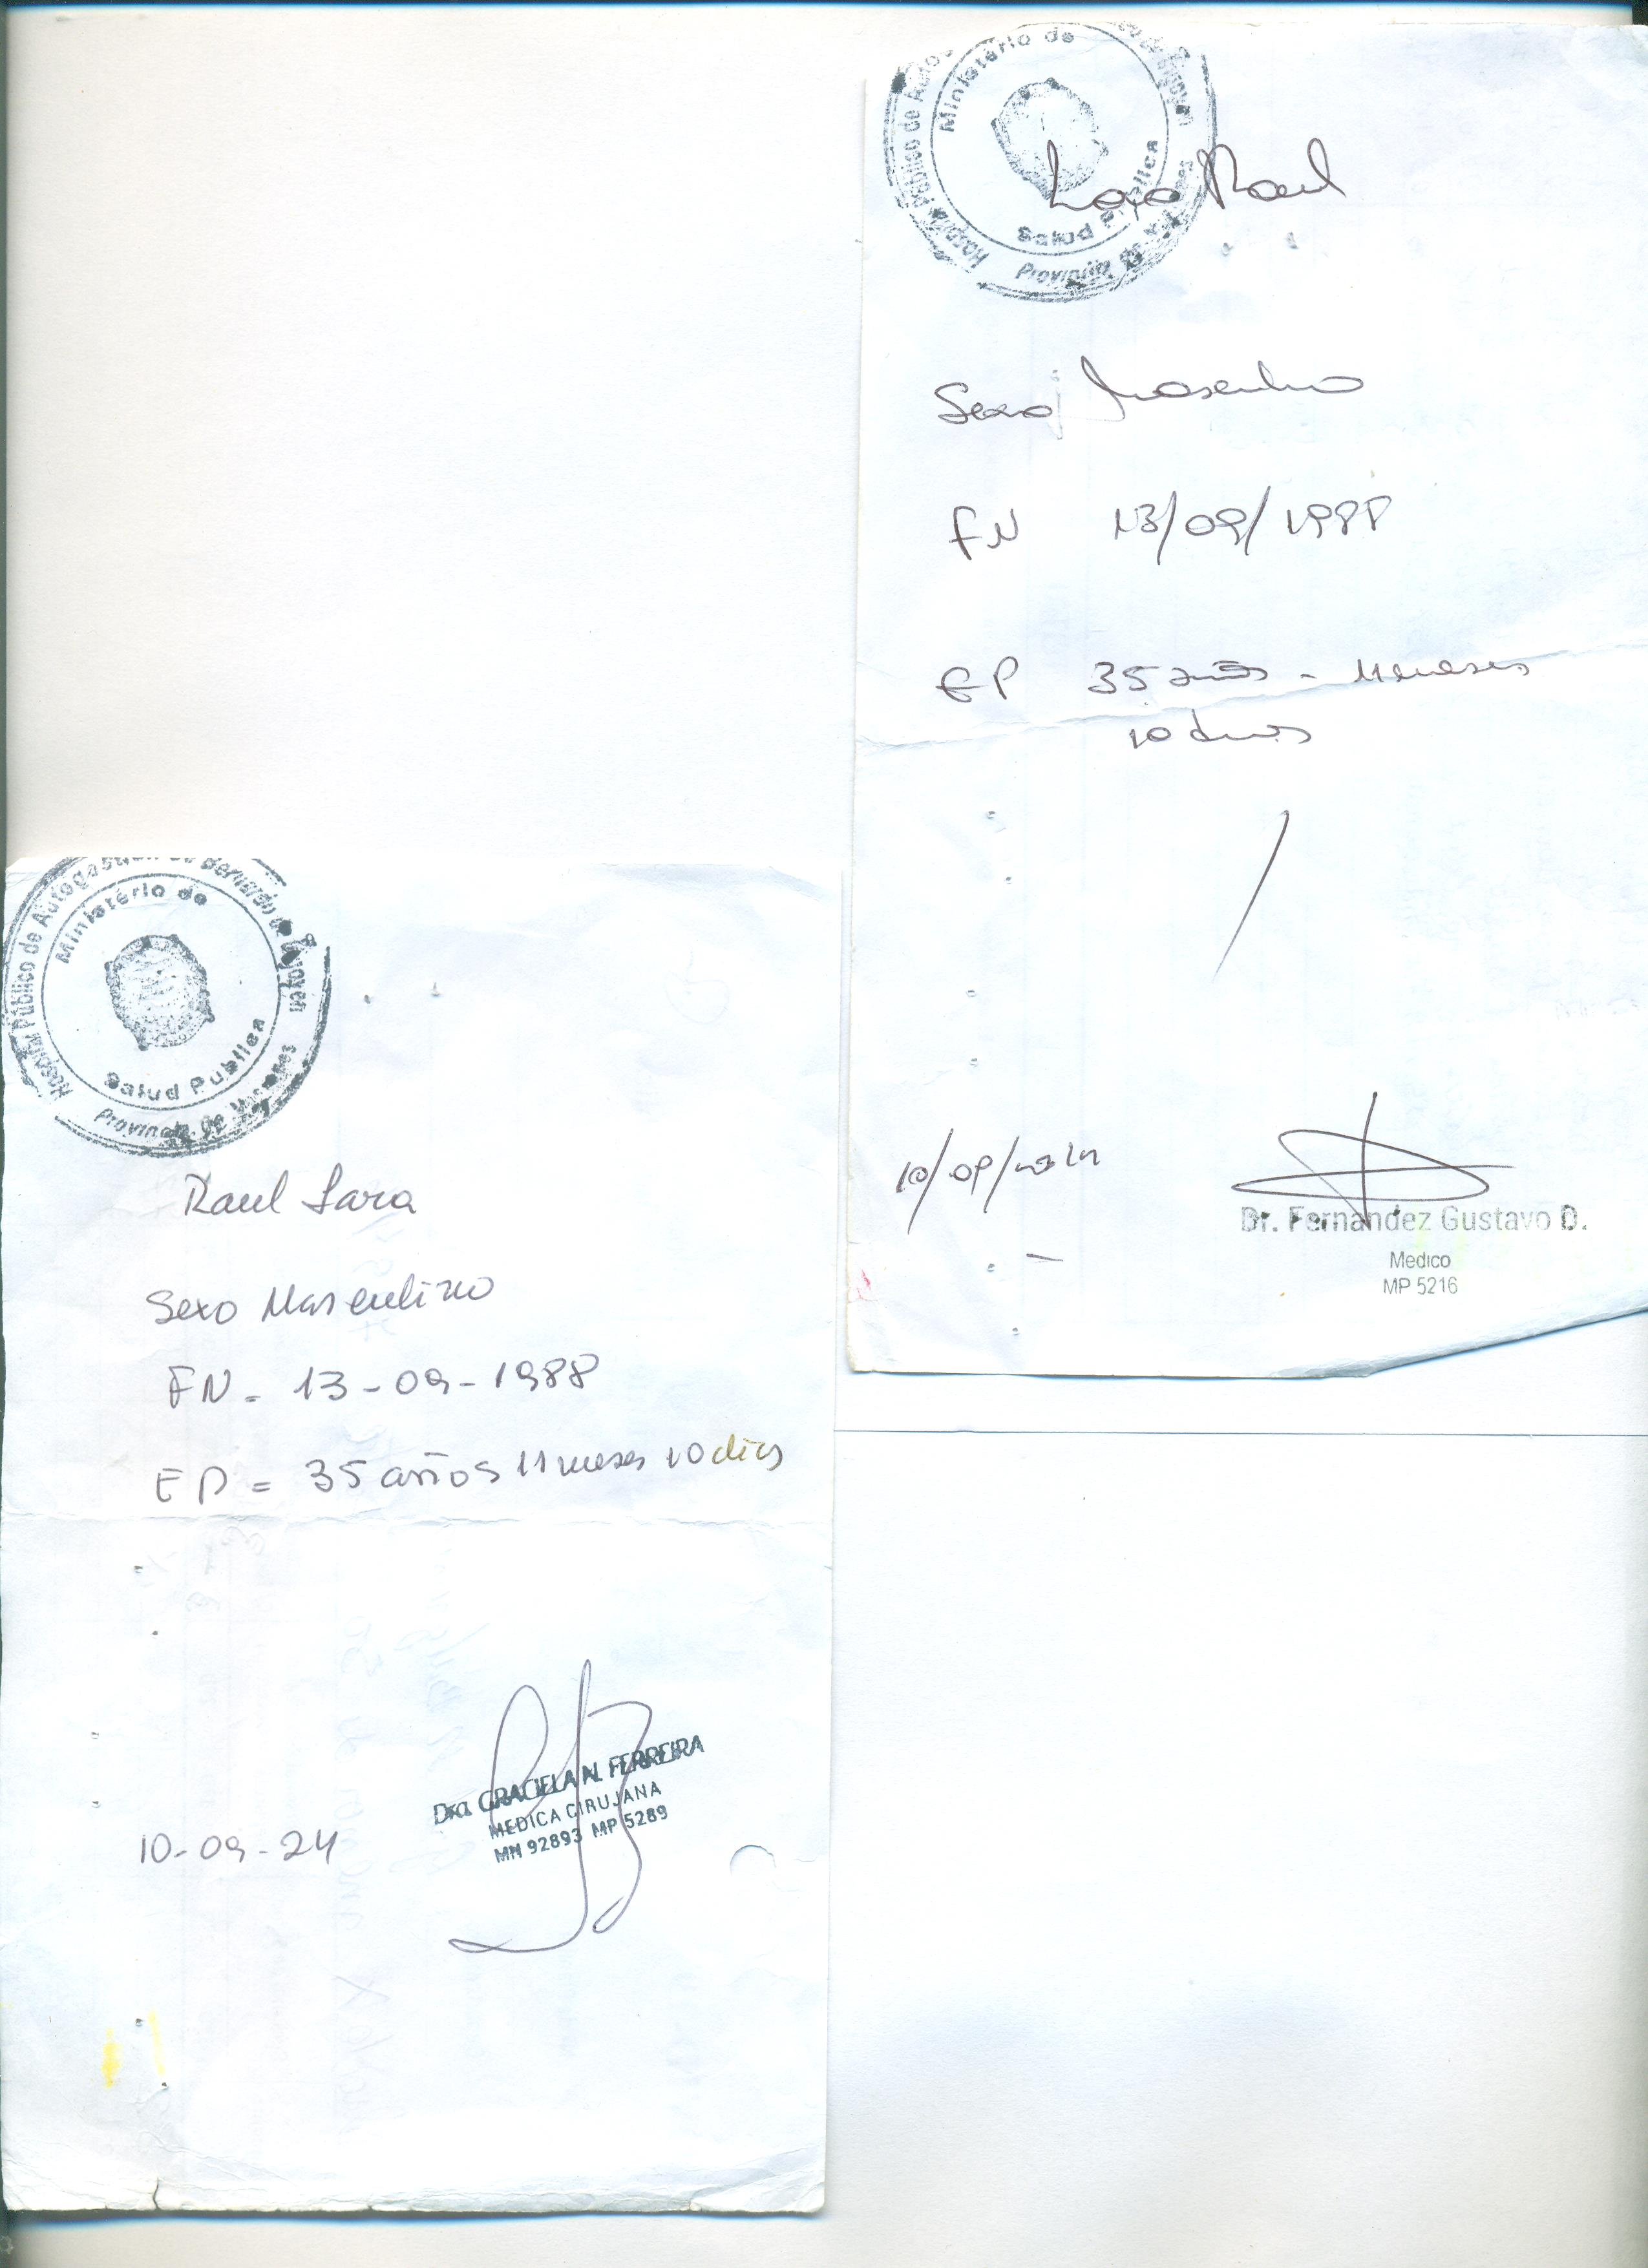 Hospital Público de Autogestión de Bernardo de Irigoyen
Ministério de
Salud Publica
Provincia de Misiones
Raul Lara
Sexo Masculino
FN - 13-09-1988
EP = 35 años 11 meses 10 dias
10-09-24
Dra. GRACIELA N. FERREIRA
MEDICA CIRUJANA
MN 92893 MP 5289
Hospital Público de Autog
Ministério de
Salud Publica
Provincia de
Lara Raul
Sexo Masculino
FN 13/09/1988
EP 35 años - 11 meses
10 dias
10/09/2024
Dr. Fernandez Gustavo D.
Medico
MP 5216